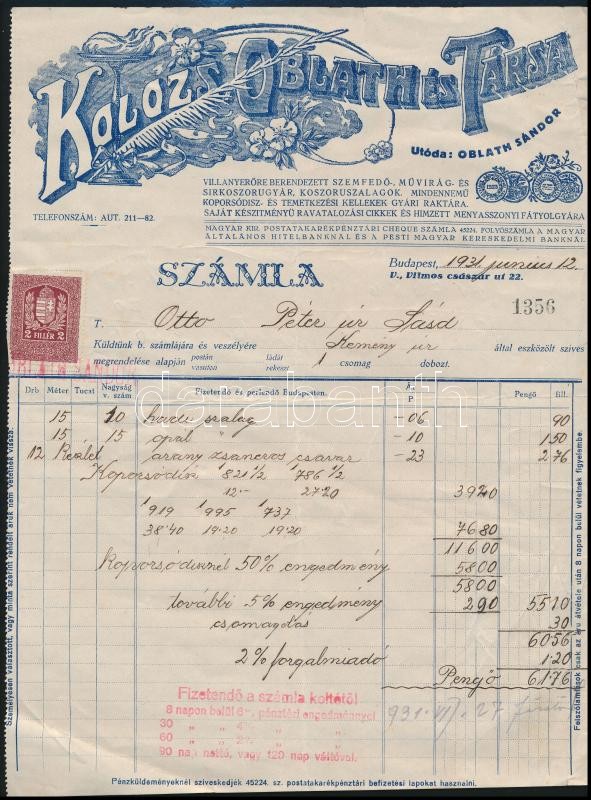 KOLOZS OBLATH ÉS TÁRSA
Utóda: OBLATH SÁNDOR
VILLANYERŐRE BERENDEZETT SZEMFEDŐ-, MŰVIRÁG- ÉS
SIRKOSZORUGYÁR, KOSZORUSZALAGOK. MINDENNEMŰ
KOPORSÓDISZ- ÉS TEMETKEZÉSI KELLEKEK GYÁRI RAKTÁRA.
SAJÁT KÉSZITMÉNYŰ RAVATALOZÁSI CIKKEK ÉS HIMZETT MENYASSZONYI FÁTYOLGYÁRA
TELEFONSZÁM: AUT. 211—82.
MAGYAR KIR. POSTATAKARÉKPÉNZTÁRI CHEQUE SZÁMLA 45224. FOLYÓSZÁMLA A MAGYAR
ÁLTALÁNOS HITELBANKNÁL ÉS A PESTI MAGYAR KERESKEDELMI BANKNÁL.
SZÁMLA
Budapest, 1931. junius 12.
V., Vilmos császár ut 22.
1356
2 FILLÉR 2
T. Otto Péter úr Sásd
Küldtünk b. számlájára és veszélyére Kemény úr által eszközölt szives
megrendelése alapján postán vasuton ládát rekeszt 1 csomag dobozt.
Drb Méter Tucat Nagyság v. szám Fizetendő és perlendő Budapesten. Ár P Pengő fill.
15 10 szalag —06 90
15 15 opál " —10 1 50
1/2 arany zsanéros csavar —23 2 76
Koporsódisz 821 1/2 786 1/2
12.— 27 20 39 20
1 919 1 995 1 737
38.40 19.20 19.20 76 80
116 00
Koporsódisznél 50% engedmény 58 00
58 00
további 5% engedmény 2 90 55 10
csomagolás 30
60 56
2% forgalmiadó 1 20
Pengő 61 76
Fizetendő a számla keltétől
8 napon belül 6%, pénztári engedménnyel
30 " " 4% " "
60 " " 2% " "
90 nap nettó, vagy 120 nap váltóval.
931. VII. 27
Személyesen választott, vagy minta szerint rendelt áruk nem vétetnek vissza.
Felszólamlások csak az áru átvétele után 8 napon belül vétetnek figyelembe.
Pénzküldeményeknél sziveskedjék 45224. sz. postatakarékpénztári befizetési lapokat használni.
darabanth